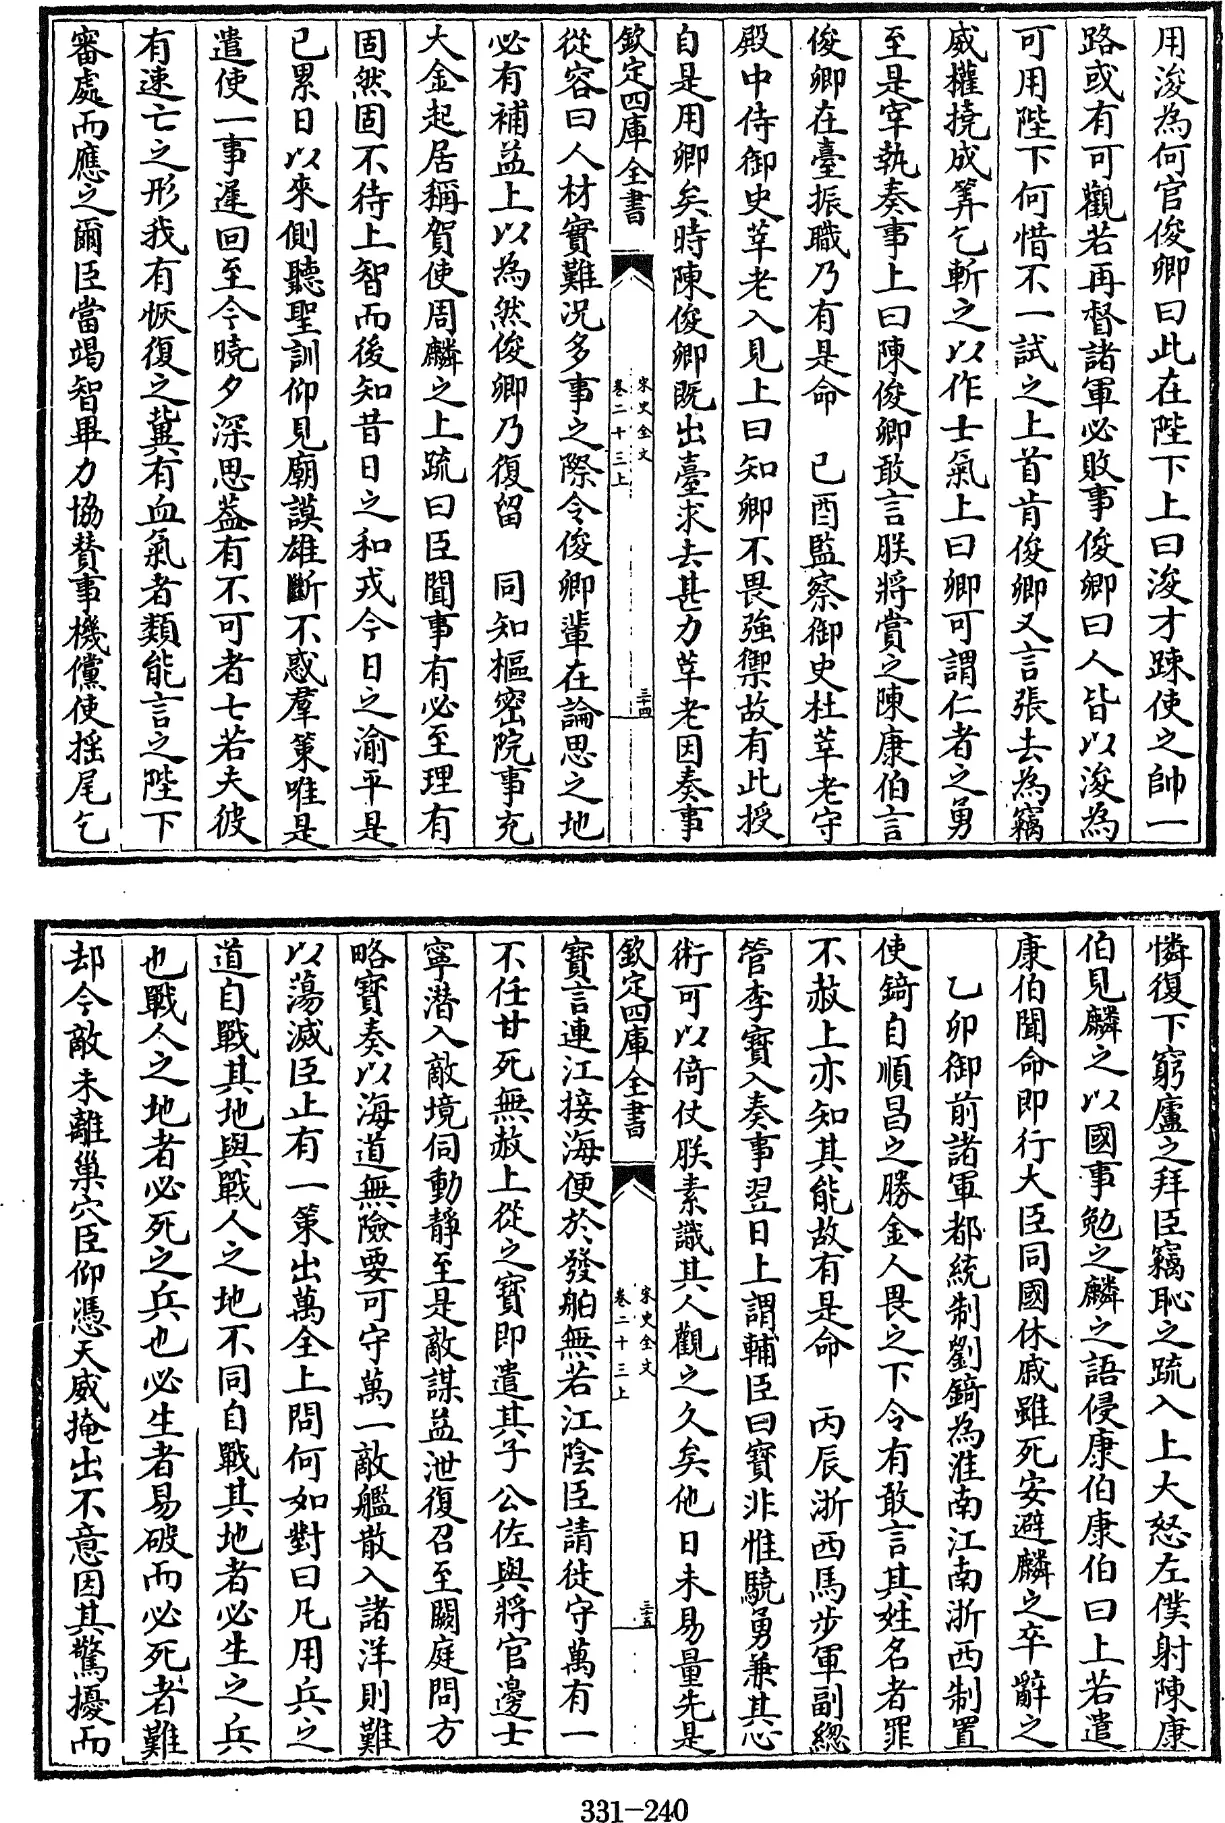 用浚為何官俊卿曰此在陛下上曰浚才踈使之帥一
路或有可觀若再督諸軍必敗事俊卿曰人皆以浚為
可用陛下何惜不一試之上首肯俊卿又言張去為竊
威權撓成筭乞斬之以作士氣上曰卿可謂仁者之勇
至是宰執奏事上曰陳俊卿敢言朕將賞之陳康伯言
俊卿在臺振職乃有是命　己酉監察御史杜莘老守
殿中侍御史莘老入見上曰知卿不畏強禦故有此授
自是用卿矣時陳俊卿既出臺求去甚力莘老因奏事
欽定四庫全書
宋史全文
卷二十三上
三十四
從容曰人材實難况多事之際令俊卿輩在論思之地
必有補益上以為然俊卿乃復留　同知樞密院事充
大金起居稱賀使周麟之上疏曰臣聞事有必至理有
固然固不待上智而後知昔日之和戎今日之渝平是
已累日以來側聽聖訓仰見廟謨雄斷不惑羣策唯是
遣使一事遲回至今曉夕深思葢有不可者七若夫彼
有速亡之形我有恢復之冀有血氣者類能言之陛下
審處而應之爾臣當竭智畢力協賛事機儻使揺尾乞
憐復下窮廬之拜臣竊恥之疏入上大怒左僕射陳康
伯見麟之以國事勉之麟之語侵康伯康伯曰上若遣
康伯聞命即行大臣同國休戚雖死安避麟之卒辭之
乙卯御前諸軍都統制劉錡為淮南江南浙西制置
使錡自順昌之勝金人畏之下令有敢言其姓名者罪
不赦上亦知其能故有是命　丙辰浙西馬步軍副總
管李寶入奏事翌日上謂輔臣曰寶非惟驍勇兼其心
術可以倚仗朕素識其人觀之久矣他日未易量先是
欽定四庫全書
宋史全文
卷二十三上
三十五
寶言連江接海便於發舶無若江陰臣請徙守萬有一
不任甘死無赦上從之寶即遣其子公佐與將官邊士
寧潜入敵境伺動靜至是敵謀益泄復召至闕庭問方
略寶奏以海道無險要可守萬一敵艦散入諸洋則難
以蕩滅臣止有一策出萬全上問何如對曰凡用兵之
道自戰其地與戰人之地不同自戰其地者必生之兵
也戰人之地者必死之兵也必生者易破而必死者難
却今敵未離巢穴臣仰憑天威掩出不意因其驚擾而
331-240